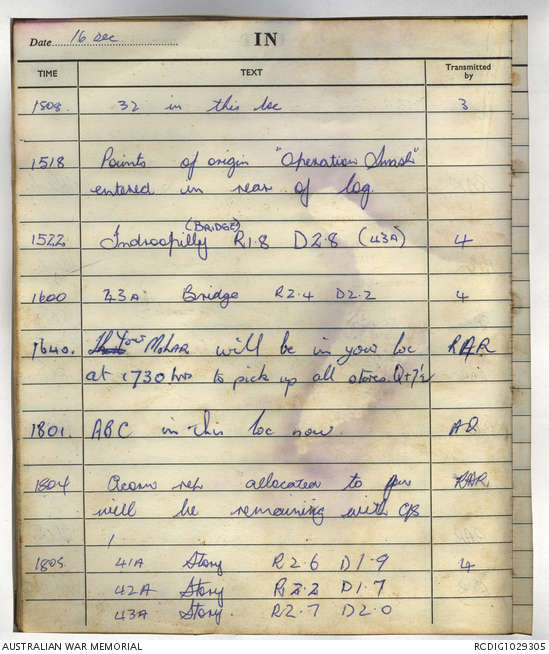 Date 16 Dec IN
TIME TEXT Transmitted by
1508. 32 in this loc 3
1518 Points of origin "Operation Smash"
entered in rear of log
1522 Indrooroopilly (BRIDGE) R1.8 D2.8 (43A) 4
1600 43A Bridge R2.4 D2.2 4
1640. Your will be in your loc RAR
at 1730 hrs to pick up all stores
1801. ABC in this loc now
1804 rep allocated to you RAR.
will be remaining with
1805 41A Stony R2.6 D1.9 4
42A Stony R2.2 D1.7
43A Stony. R2.7 D2.0
AUSTRALIAN WAR MEMORIAL RCDIG1029305